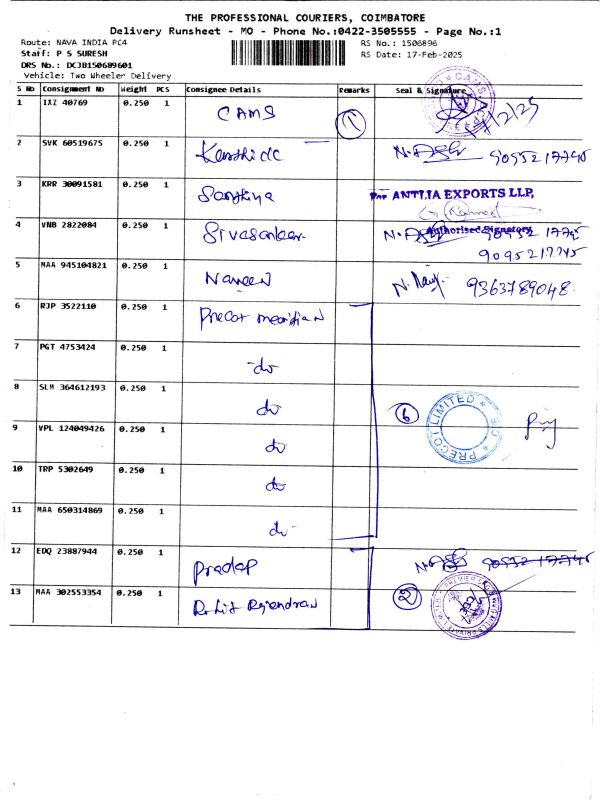 THE PROFESSIONAL COURIERS, COIMBATORE
Delivery Runsheet - MO - Phone No.:0422-3505555 - Page No.:1
Route: NAVA INDIA PC4
RS No.: 1506896
Staff: P S SURESH
RS Date: 17-Feb-2025
DRS No.: DCJB150689601
Vehicle: Two Wheeler Delivery
S No Consignment No Weight PCS Consignee Details Remarks Seal & Signature
1 IXZ 40769 0.250 1 CAMS 1
2 SVK 60519675 0.250 1 9095217745
3 KRR 30091581 0.250 1 Santhiya
For ANTLIA EXPORTS LLP,
Authorised Signatory
4 VNB 2822084 0.250 1 Sivasankar 90952 17745
9095217745
5 MAA 945104821 0.250 1 Naveen 9363789048
6 RJP 3522110 0.250 1 Precot meridian
7 PGT 4753424 0.250 1 -do-
8 SLM 364612193 0.250 1 do 6 PRECOT LIMITED
9 VPL 124049426 0.250 1 do
10 TRP 5302649 0.250 1 do
11 MAA 650314869 0.250 1 do
12 EDQ 23887944 0.250 1 Pradap 90952 17745
13 MAA 302553354 0.250 1 Rohit Rajendran 2